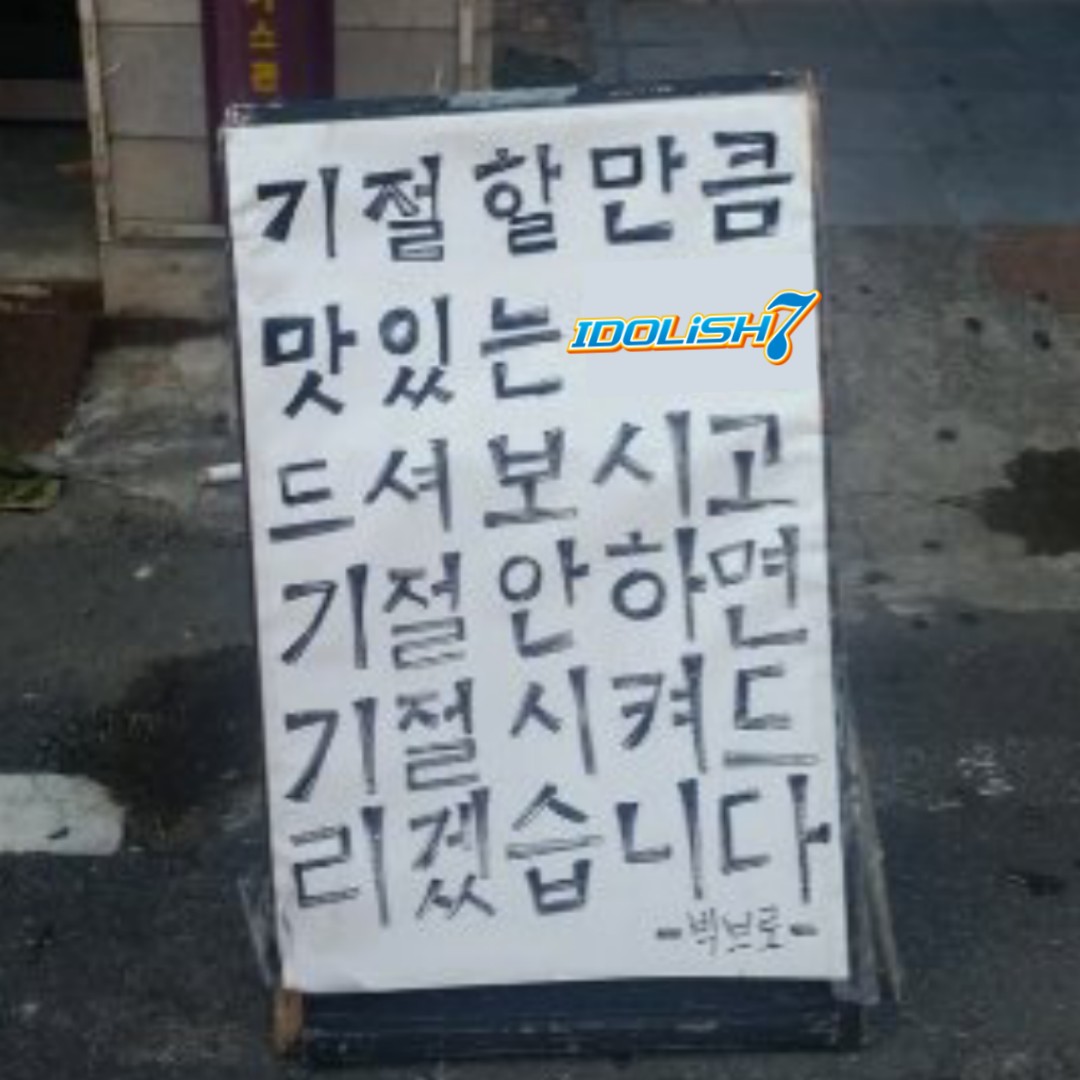 스
기절할만큼
맛있는 IDOLiSH7
드셔보시고
기절안하면
기절시켜드
리겠습니다
-빅브로-